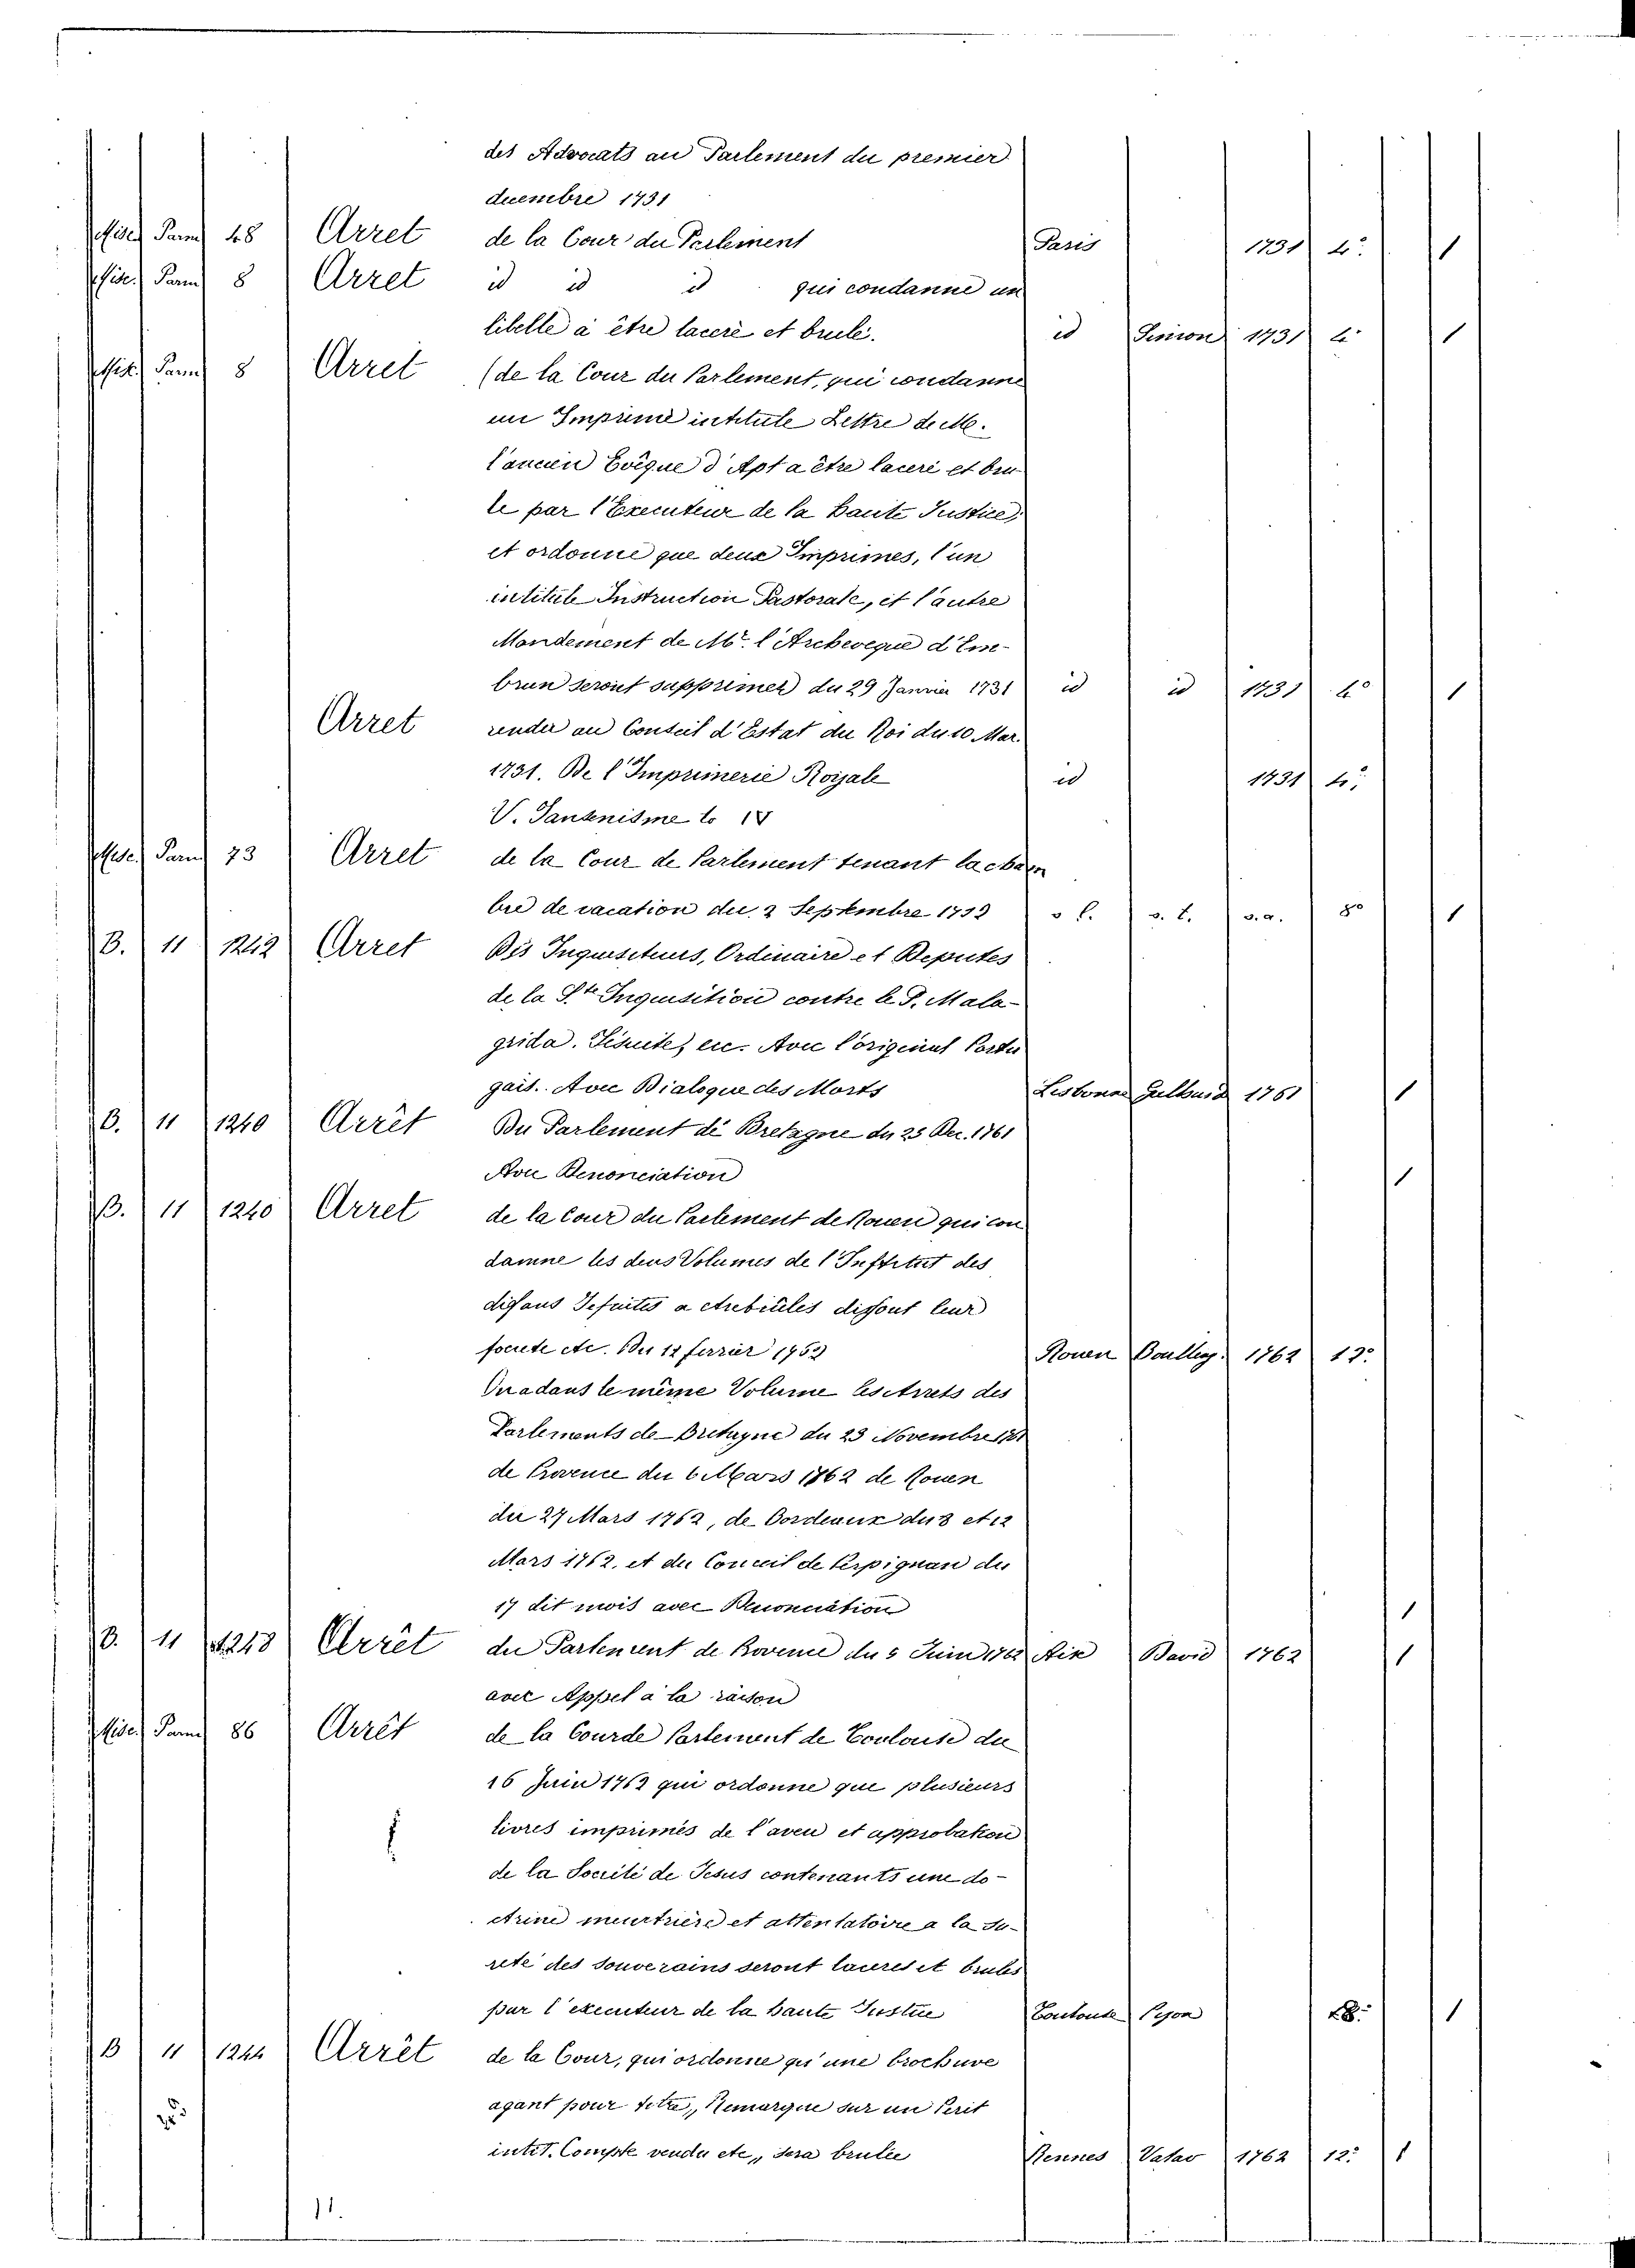 des Advocats au Parlement du premier
duembre 1731
Misc. Parm 48 Arret de la Cour du Parlement Paris 1731 4° 1
Misc. Parm 8 Arret id id id qui condanne un
libelle à être laceré et brulé. id Simon 1731 4° 1
Misc. Parm 8 Arret (de la Cour du Parlement, qui condanne
un Imprimé intitule Lettre de M.
l'ancien Evêque d'Apt a être laceré et bru
le par l'Executeur de la haute Justice,
et ordonne que deux Imprimes, l'un
intitulé Instruction Pastorale, et l'autre
Mandement de Mr. l'Archeveque d'Em-
brun seront supprimez du 29 Janvier 1731 id id 1731 4° 1
Arret rendu au Conseil d'Estat du Roi du 10 Mar.
1731. De l'Imprimerie Royale id 1731 4°
V. Jansenisme to IV
Misc. Parm 73 Arret de la Cour de Parlement tenant la cham
bre de vacation du 2 Septembre s. l. s. t. s. a. 8° 1
B. 11 1242 Arret Des Inquisiteurs, Ordinaire et Deputes
de la Ste Inquisition contre le P. Mala-
grida. Jesuite, etc. Avec l'original Portu
gais. Avec Dialogue des Morts Lesbonne 1761 1
B. 11 1240 Arrêt Du Parlement de Bretagne du 23 Dec. 1761
Avec Denonciation 1
B. 11 1240 Arret de la Cour du Parlement de Rouen qui con
damne les deus Volumes de l'Institut des
disans Jesuites a
etc. Du 12 1762 Rouen 1762 12°
On a dans le même Volume les Arrets des
Parlements de Bretagne du 23 Novembre 1761
de Provence du 6 Mars 1762 de Rouen
du 27 Mars 1762, de Bordeaux du 8 et 12
Mars 1762, et du Conseil de Perpignan du
17 dit mois avec Denonciation 1
B. 11 1243 Arrêt du Parlement de Provence du 5 Juin 1762 Aix David 1762 1
avec Appel à la raison
Misc. Parm 86 Arrêt de la Cour de Parlement de Toulouse du
16 Juin 1762 qui ordonne que plusieurs
livres imprimés de l'aveu et approbation
de la Société de Jesus contenants une do-
ctrine meurtriere et attentatoire a la su-
reté des souverains seront laceres et brules
par l'executeur de la haute Justice Toulouse 8° 1
B 11 1244 Arrêt de la Cour, qui ordonne qu'une brochure
ayant pour titre, Remarque sur un Ecrit
intit. Compte rendu etc, sera brulée Rennes Vatar 1762 12° 1
11.